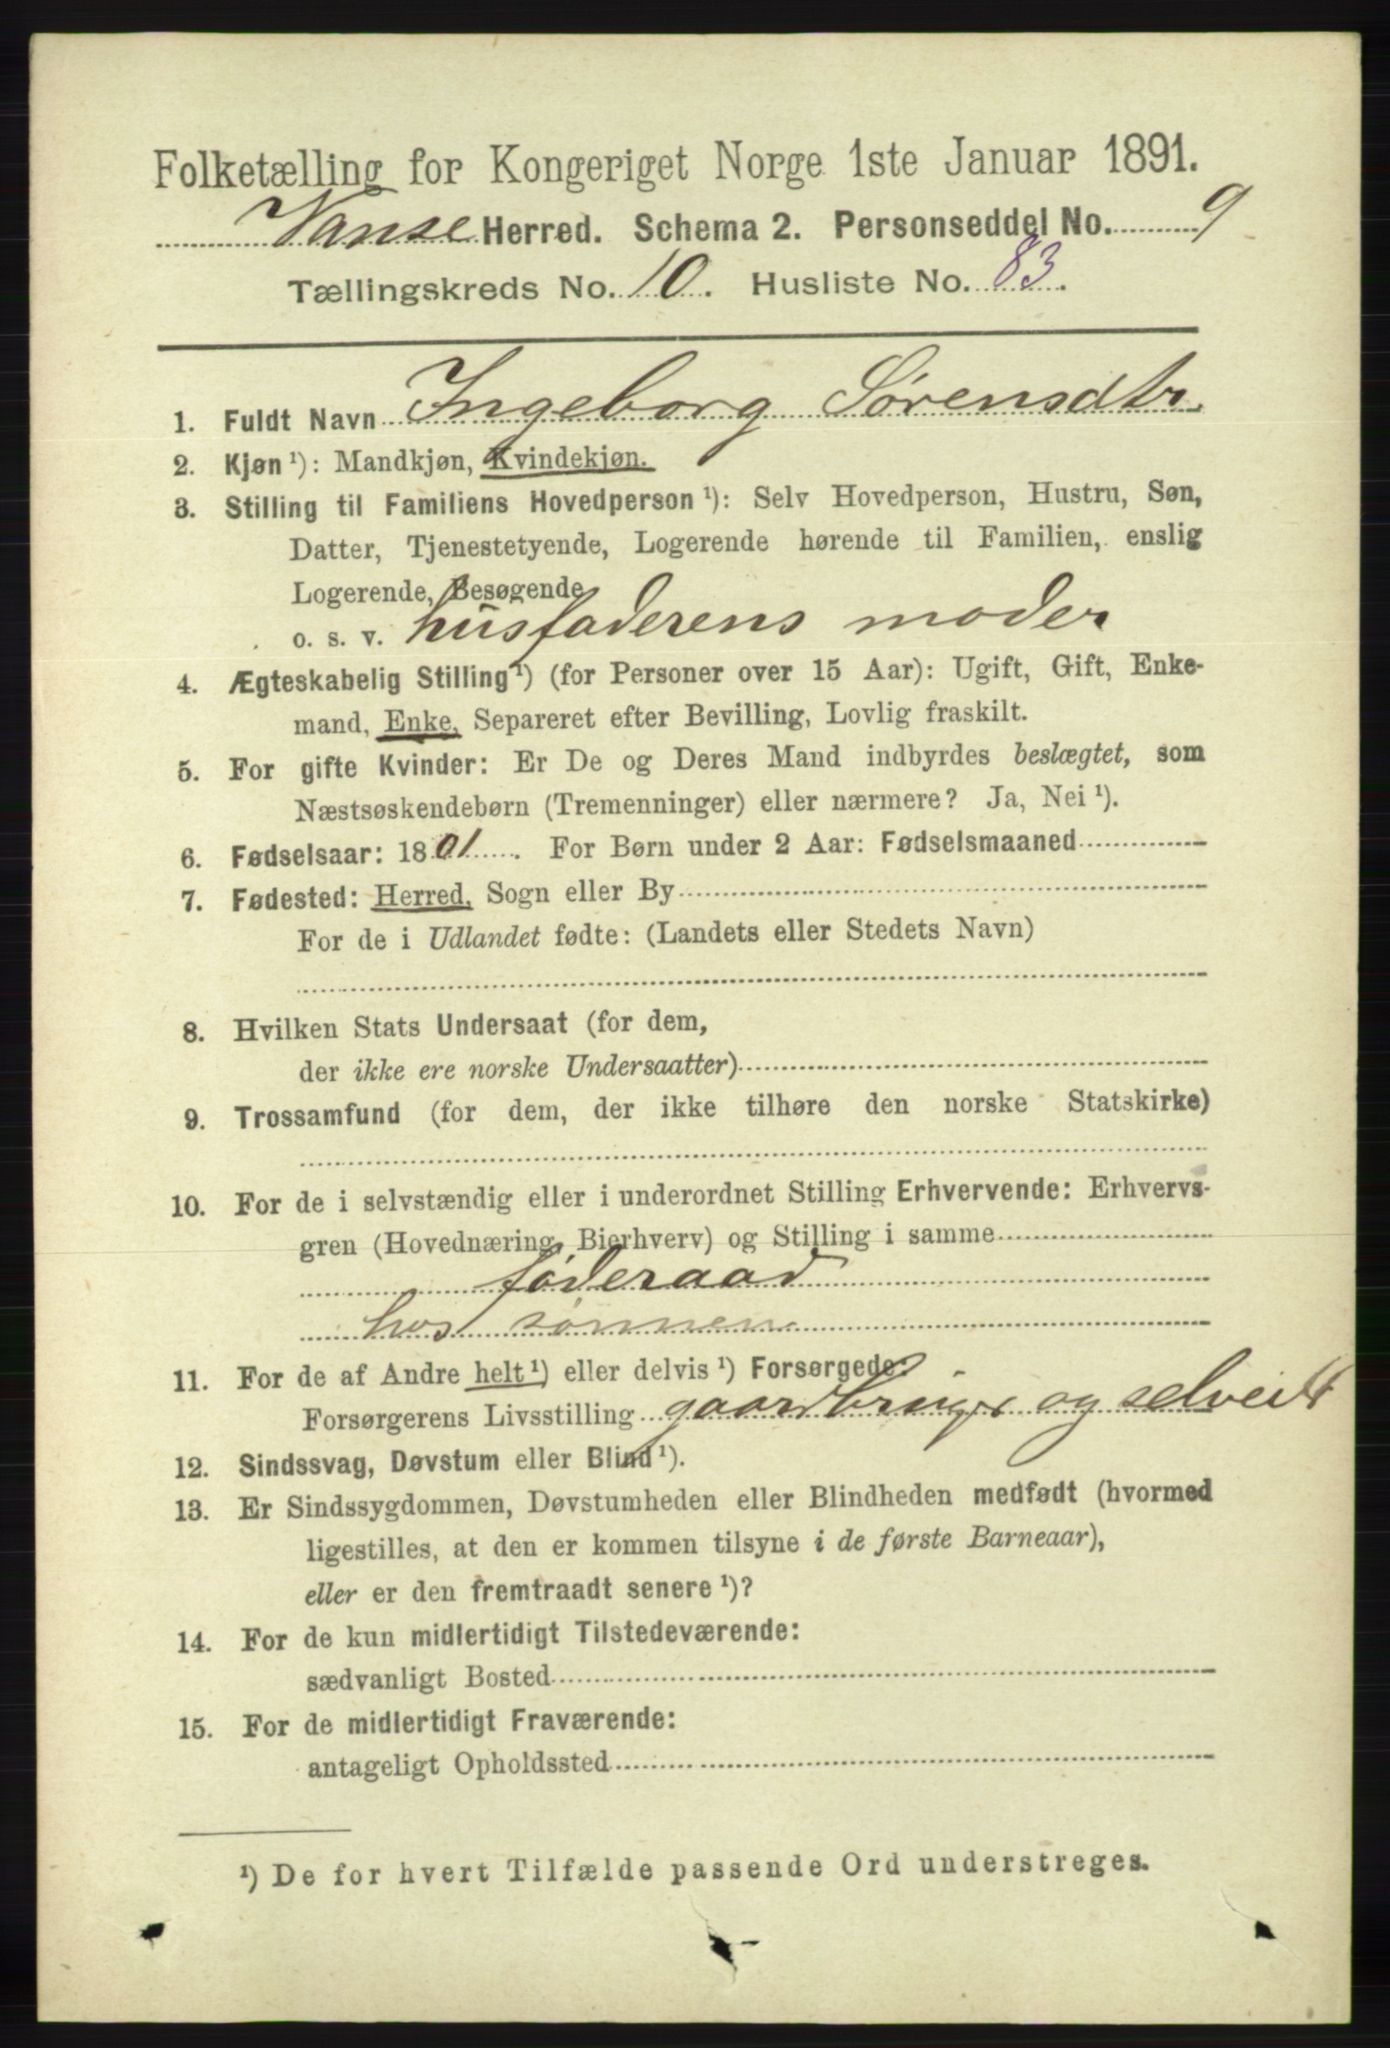 Folketælling for Kongeriget Norge 1ste Januar 1891.
Vanse Herred. Schema 2. Personseddel No. 9
Tællingskreds No. 10. Husliste No. 83.
1. Fuldt Navn Ingeborg Sørensdtr.
2. Kjøn ¹): Mandkjøn, Kvindekjøn.
3. Stilling til Familiens Hovedperson ¹): Selv Hovedperson, Hustru, Søn,
Datter, Tjenestetyende, Logerende hørende til Familien, enslig
Logerende, Besøgende
o. s. v. husfaderens moder
4. Ægteskabelig Stilling ¹) (for Personer over 15 Aar): Ugift, Gift, Enke-
mand, Enke, Separeret efter Bevilling, Lovlig fraskilt.
5. For gifte Kvinder: Er De og Deres Mand indbyrdes beslægtet, som
Næstsøskendebørn (Tremenninger) eller nærmere? Ja, Nei ¹).
6. Fødselsaar: 1801. For Børn under 2 Aar: Fødselsmaaned
7. Fødested: Herred, Sogn eller By
For de i Udlandet fødte: (Landets eller Stedets Navn)
8. Hvilken Stats Undersaat (for dem,
der ikke ere norske Undersaatter)
9. Trossamfund (for dem, der ikke tilhøre den norske Statskirke)
10. For de i selvstændig eller i underordnet Stilling Erhvervende: Erhvervs-
gren (Hovednæring, Bierhverv) og Stilling i samme
føderaad
hos sønnen
11. For de af Andre helt ¹) eller delvis ¹) Forsørgede:
Forsørgerens Livsstilling gaardbruger og selveier
12. Sindssvag, Døvstum eller Blind ¹).
13. Er Sindssygdommen, Døvstumheden eller Blindheden medfødt (hvormed
ligestilles, at den er kommen tilsyne i de første Barneaar),
eller er den fremtraadt senere ¹)?
14. For de kun midlertidigt Tilstedeværende:
sædvanligt Bosted
15. For de midlertidigt Fraværende:
antageligt Opholdssted
¹) De for hvert Tilfælde passende Ord understreges.